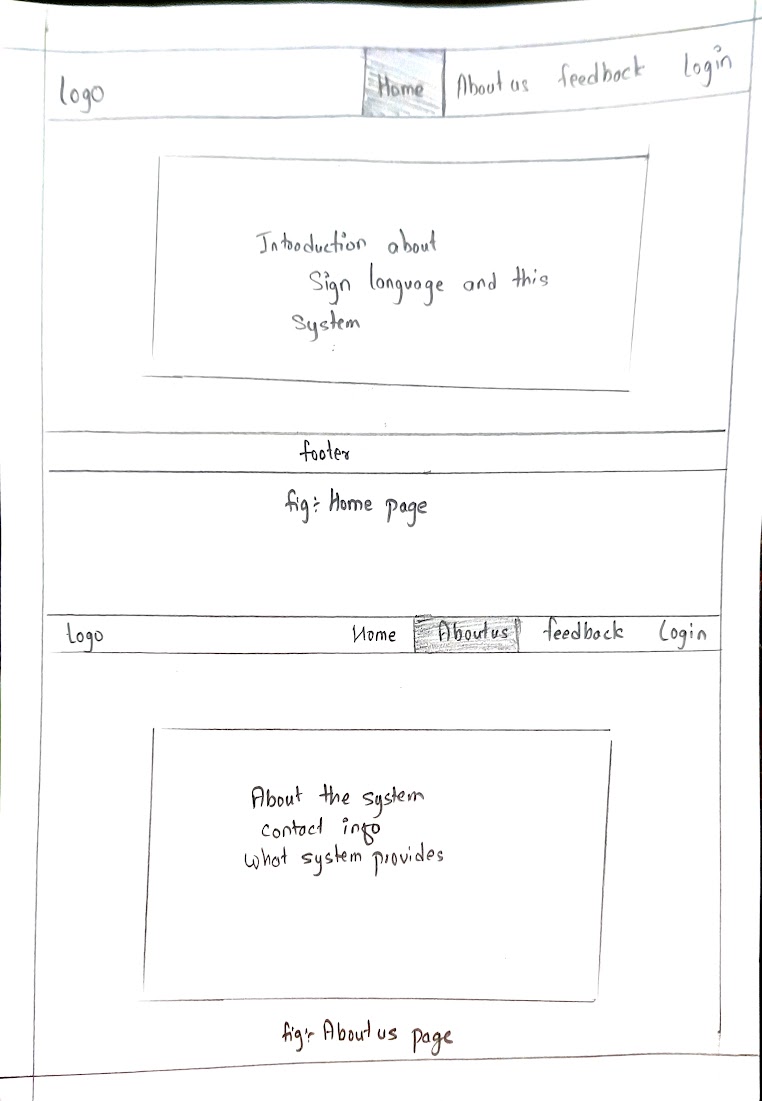 logo Home About us feedback Login
Introduction about
Sign language and this
System
footer
fig:- Home page
logo Home About us feedback Login
About the system
contact info
what system provides
fig:- About us page